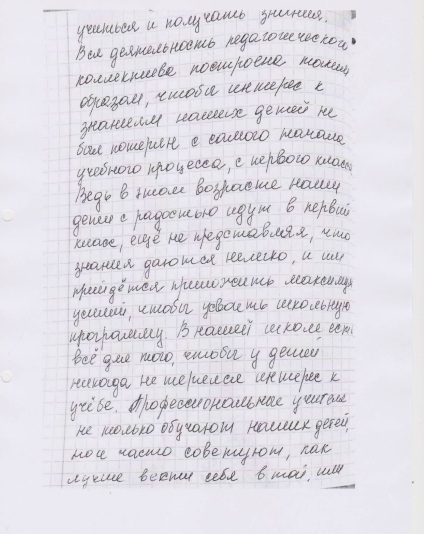 учиться и получать знания.
Вся деятельность педагогического
коллектива построена таким
образом, чтобы интерес к
знаниям наших детей не
был потерян с самого начала
учебного процесса, с первого класса
Ведь в этом возрасте наши
дети с радостью идут в первый
класс, ещё не представляя, что
знания даются нелегко, и им
придётся приложить максимум
усилий, чтобы усвоить школьную
программу. В нашей школе есть
всё для того, чтобы у детей
никогда не терялся интерес к
учёбе. Профессиональные учителя
не только обучают наших детей,
но и часто советуют, как
лучше вести себя в той, или